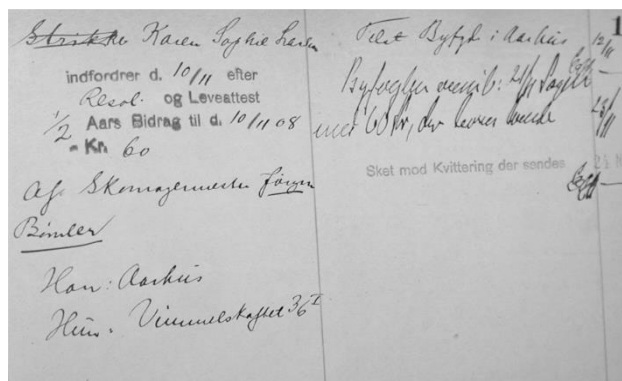 Karen Sophie Larsen
indfordrer d. 10/11 efter
Resol. og Leveattest
1/2 Aars Bidrag til d. 10/11 08
- Kr. 60
Af Skomagermester Jørgen
Bømler
Han: Aarhus
Hun: Vimmelskaftet 36 I
Tilst Byfgd i Aarhus 12/11
Byfogden
med 60 Kr, der
Sket mod Kvittering der sendes
1